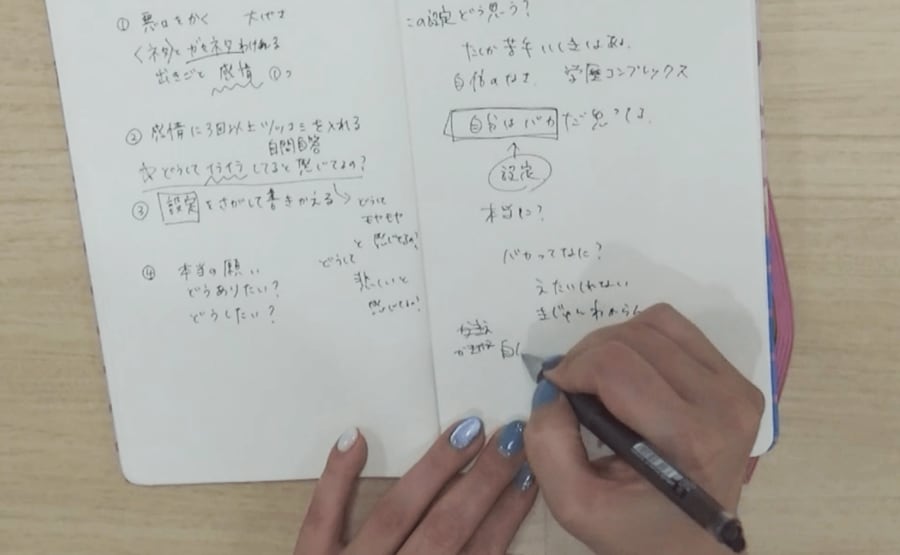 ① 悪口をかく
ネタとガセネタわけれる
出きごと 感情 ①つ
② 感情に3回以上ツッコミを入れる
自問自答
どうしてイライラしてると感じてるの?
③ 設定をさがして書きかえる
どうして
モヤモヤ
と感じてるの?
どうして
悲しいと
感じてるの?
④ 本当の願い
どうありたい?
どうしたい?
この設定どう思う?
たしか苦手いしきはある。
自信のなさ 学歴コンプレックス
自分はバカだと思ってる
設定
本当に?
バカってなに?
えたいしれない
きじゅんわからん
自